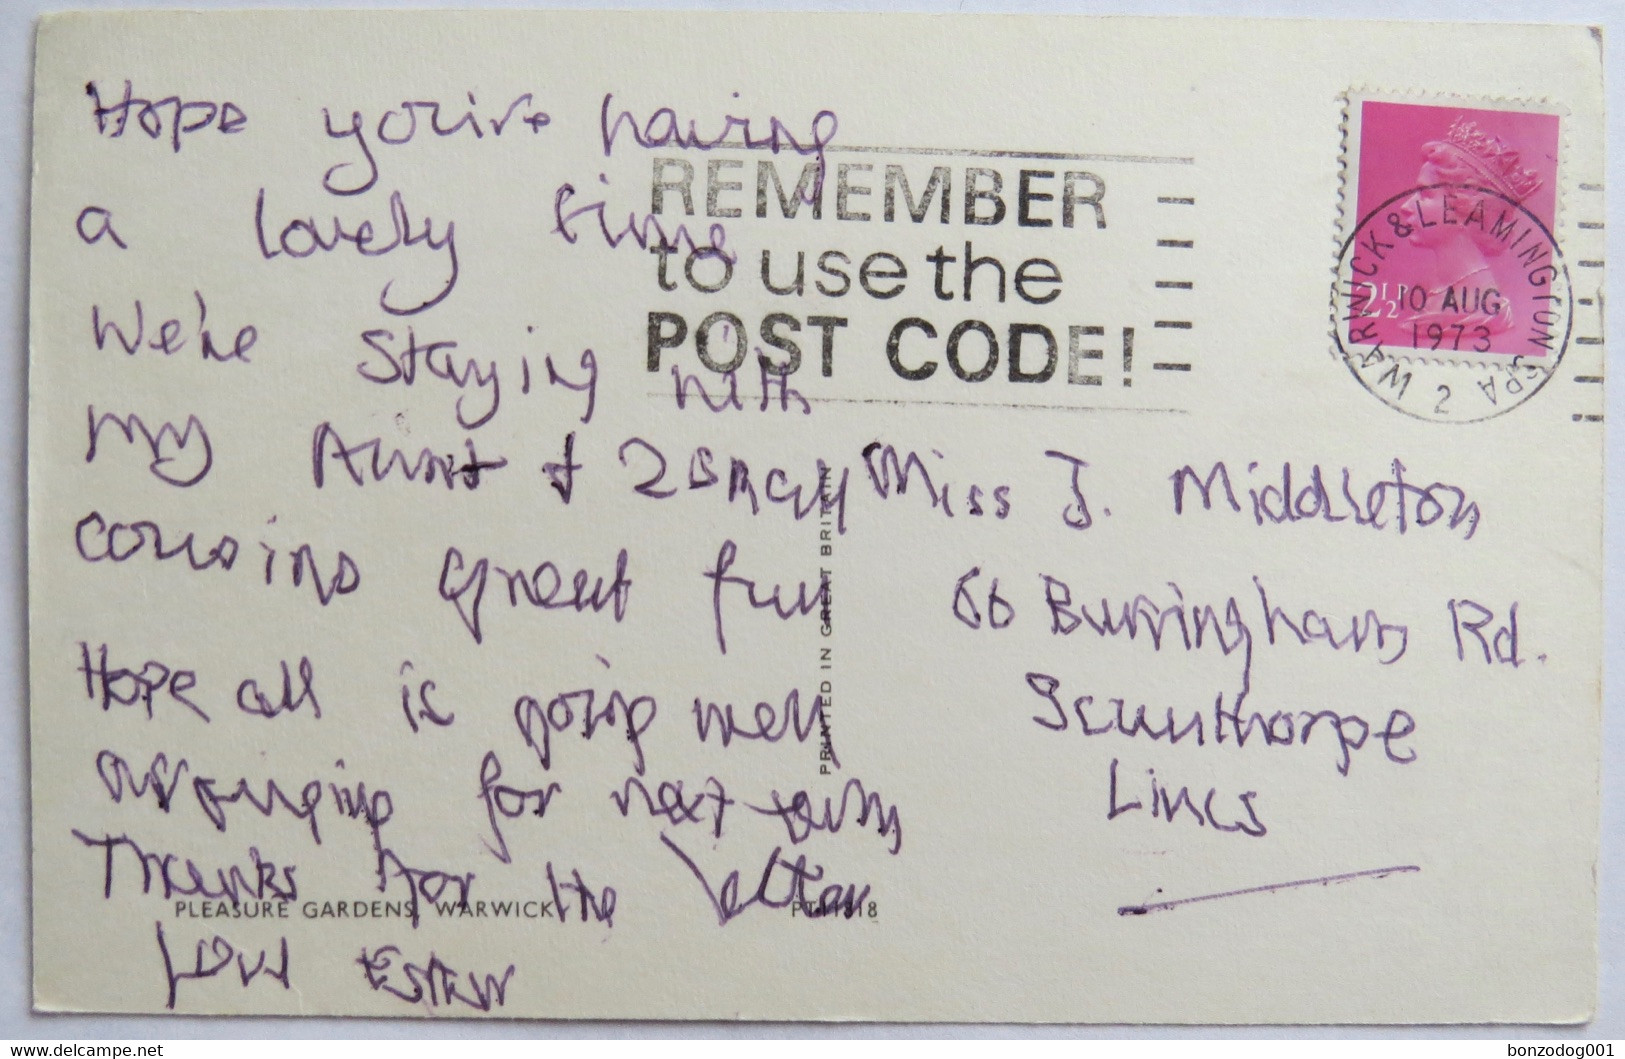 Hope you're having
a lovely time
We're staying with
my Aunt & 2 small
cousins great fun
Hope all is going well
arranging for next term
Thanks for the letter
Love Esther
REMEMBER
to use the
POST CODE!
WARWICK & LEAMINGTON SPA
10 AUG
1973
2
2½P
Miss J. Middleton
66 Burringham Rd.
Scunthorpe
Lincs
PRINTED IN GREAT BRITAIN
PLEASURE GARDENS, WARWICK
www.delcampe.net
bonzodog001